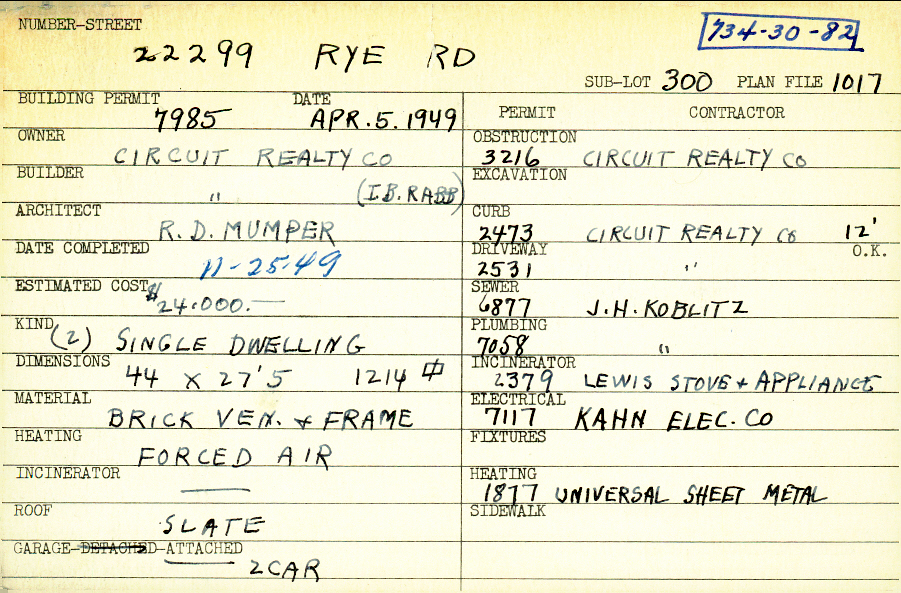 NUMBER-STREET
22299 RYE RD
734-30-82
SUB-LOT 300 PLAN FILE 1017
BUILDING PERMIT DATE
7985 APR. 5. 1949
OWNER
CIRCUIT REALTY CO
BUILDER
" (I.B. RABB)
ARCHITECT
R. D. MUMPER
DATE COMPLETED
11-25-49
ESTIMATED COST
$24.000.—
KIND
(2) SINGLE DWELLING
DIMENSIONS
44 X 27'5 1214
MATERIAL
BRICK VEN. + FRAME
HEATING
FORCED AIR
INCINERATOR
—
ROOF
SLATE
GARAGE-DETACHED-ATTACHED
2 CAR
PERMIT CONTRACTOR
OBSTRUCTION
3216 CIRCUIT REALTY CO
EXCAVATION
CURB
2473 CIRCUIT REALTY CO 12'
DRIVEWAY O.K.
2531 "
SEWER
6877 J. H. KOBLITZ
PLUMBING
7058 "
INCINERATOR
2379 LEWIS STOVE + APPLIANCE
ELECTRICAL
7117 KAHN ELEC. CO
FIXTURES
HEATING
1877 UNIVERSAL SHEET METAL
SIDEWALK